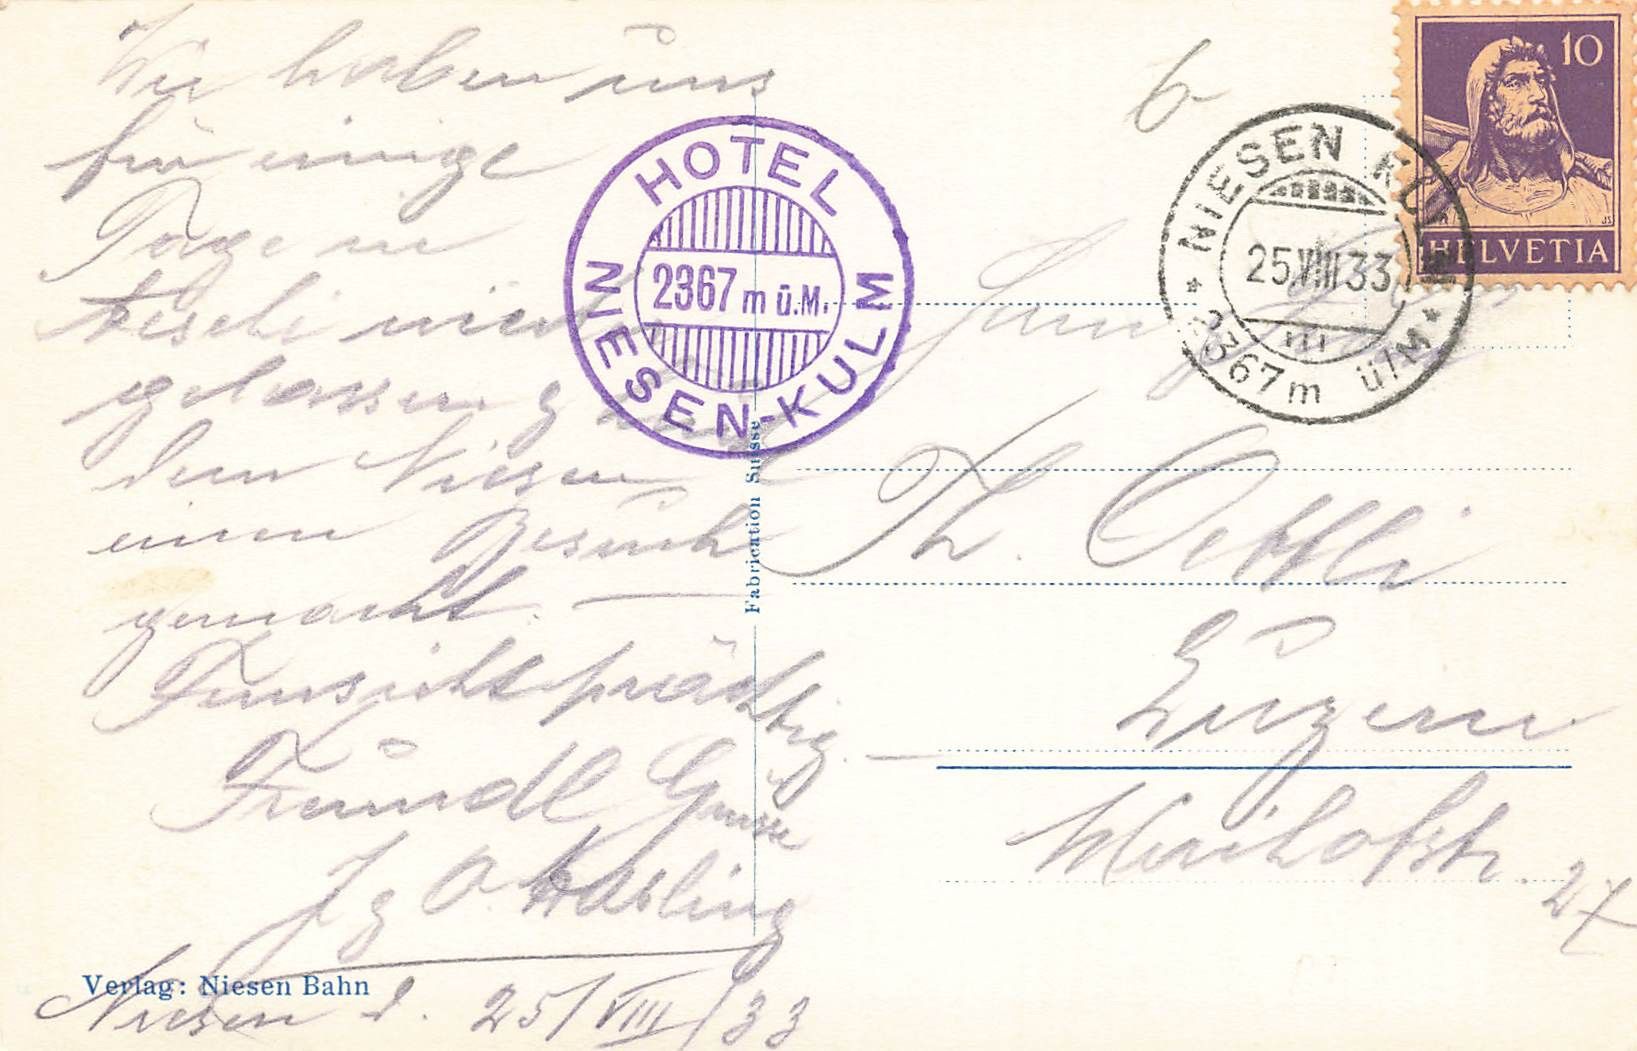 Wir haben uns
für einige
Tage in
Aeschi nieder
gelassen &
dem Niesen
einen Besuch
gemacht. —
Fernsicht prächtig. —
Freundl Grüsse
Niesen d. 25/VIII/33
Verlag: Niesen Bahn
Fabrication Suisse
HOTEL
2367 m ü.M.
NIESEN-KULM
6
NIESEN KULM
25.VIII.33
2367 m ü/M
10
HELVETIA
Familie
Th. Oettli
Luzern
Maihofstr. 27